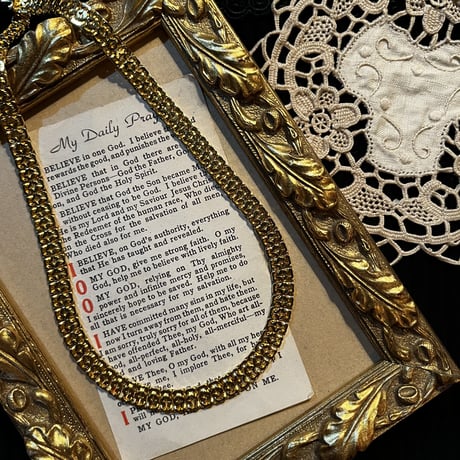 My Daily Pra
BELIEVE in one God. I believe
rewards the good, and punishes the
BELIEVE that in God there are
Divine Persons—God the Father, God
and God the Holy Spirit.
BELIEVE that God the Son became M
without ceasing to be God. I believe
is my Lord and my Saviour Jesus Christ
the Redeemer of the human race,
on the Cross for the salvation of all men,
Who died also for me.
BELIEVE on God's authority, everything
that He has taught and revealed.
O MY GOD, give me strong faith. O my
God, help me to believe with lively faith.
O MY GOD, relying on Thy almighty
power and infinite mercy and promises,
sincerely hope to be saved. Help me to do
all that is necessary for my salvation.
I HAVE committed many sins in my life, but
now I turn away from them, and hate them.
am sorry, truly sorry for all of them, because
have offended Thee, my God, Who art all-
good, all-perfect, all-holy, all-merciful
and loving Father.
Thee, O my God, with all my
me, I implore Thee, for
I
will
MY GOD, ON ME.